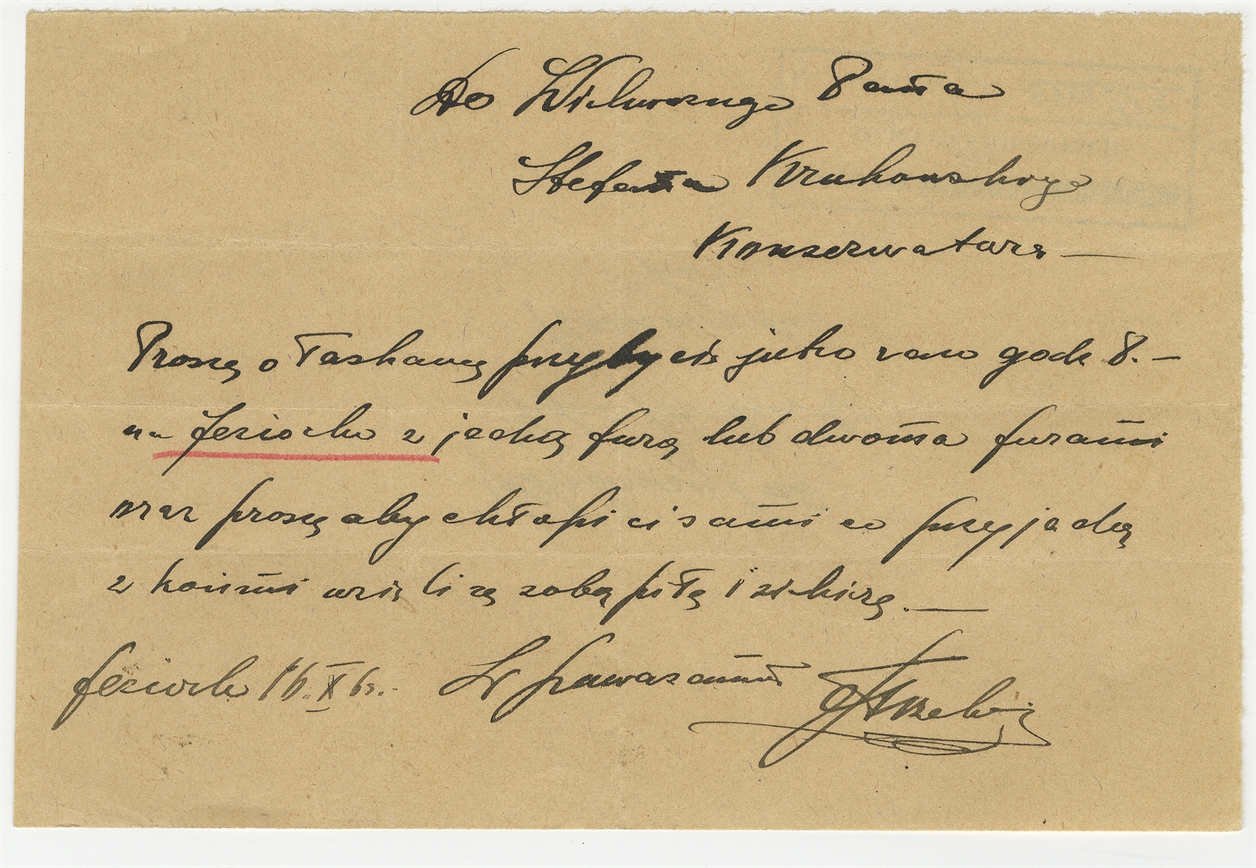 Do Wielmożnego Pana
Stefana Krukowskiego
Konserwatora —
Proszę o łaskawe przybycie jutro rano godz 8. —
na Jeziorko z jedną furą lub dwoma furami
oraz proszę aby chłopi ci sami co przyjadą
z końmi wzięli ze sobą piłę i siekierę. —
Jeziorko 16. X Z poważaniem